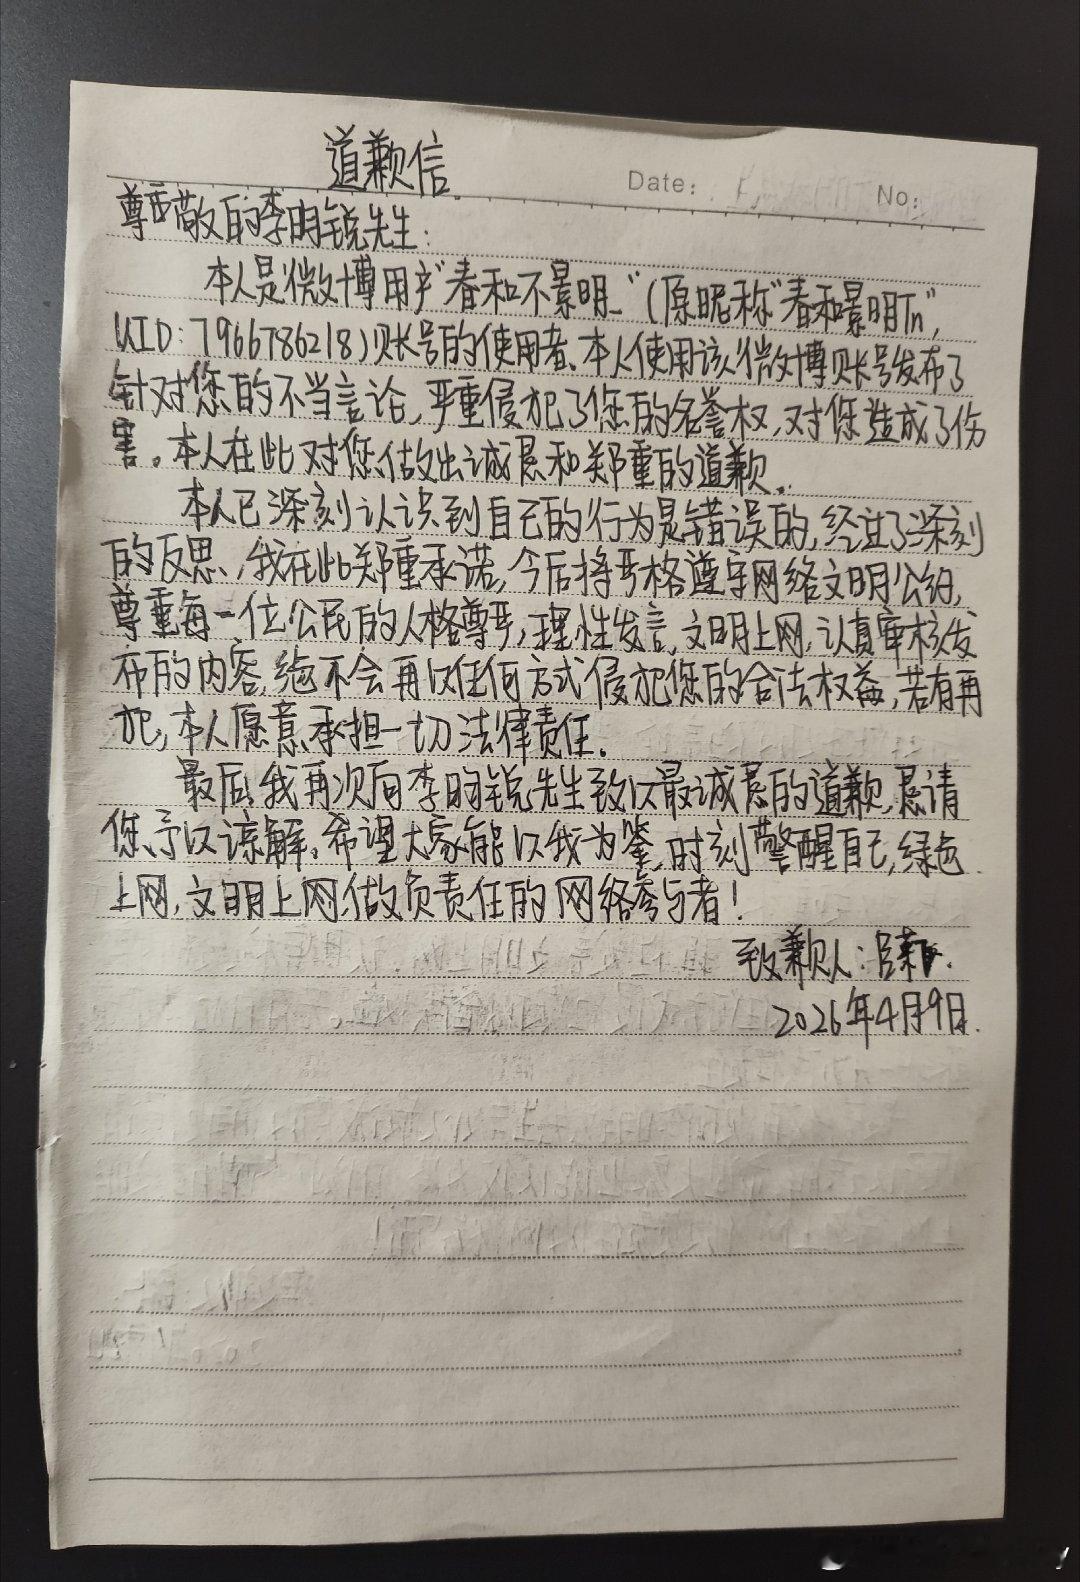 道歉信
Date:
No:
尊敬的李昀锐先生:
本人是微博用户"春和不景明_"(原昵称"春和景明Tn",
UID:7966786218)账号的使用者、本人使用该微博账号发布了
针对您的不当言论,严重侵犯了您的名誉权,对您造成了伤
害。本人在此对您做出诚恳和郑重的道歉。
本人已深刻认识到自己的行为是错误的,经过了深刻
的反思,我在此郑重承诺,今后将严格遵守网络文明公约,
尊重每一位公民的人格尊严,理性发言,文明上网,认真审核发
布的内容,绝不会再以任何方式侵犯您的合法权益,若有再
犯,本人愿意承担一切法律责任。
最后,我再次向李昀锐先生致以最诚恳的道歉,恳请
您予以谅解。希望大家能以我为鉴,时刻警醒自己,绿色
上网,文明上网,做负责任的网络参与者!
致歉人:
2026年4月9日.